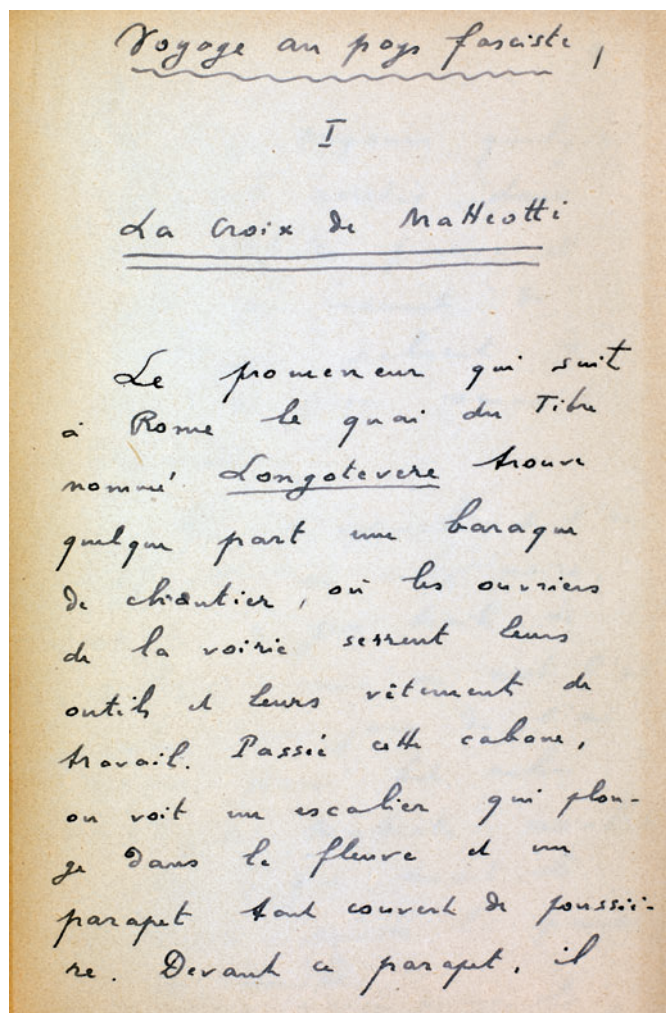 Voyage au pays fasciste,
I
La Croix de Matteotti
Le promeneur qui suit
à Rome le quai du Tibre
nommé Longotevere trouve
quelque part une baraque
de chantier, où les ouvriers
de la voirie serrent leurs
outils et leurs vêtement de
travail. Passée cette cabane,
on voit un escalier qui plon-
ge dans le fleuve et un
parapet tout couvert de poussiè-
re. Devant ce parapet, il